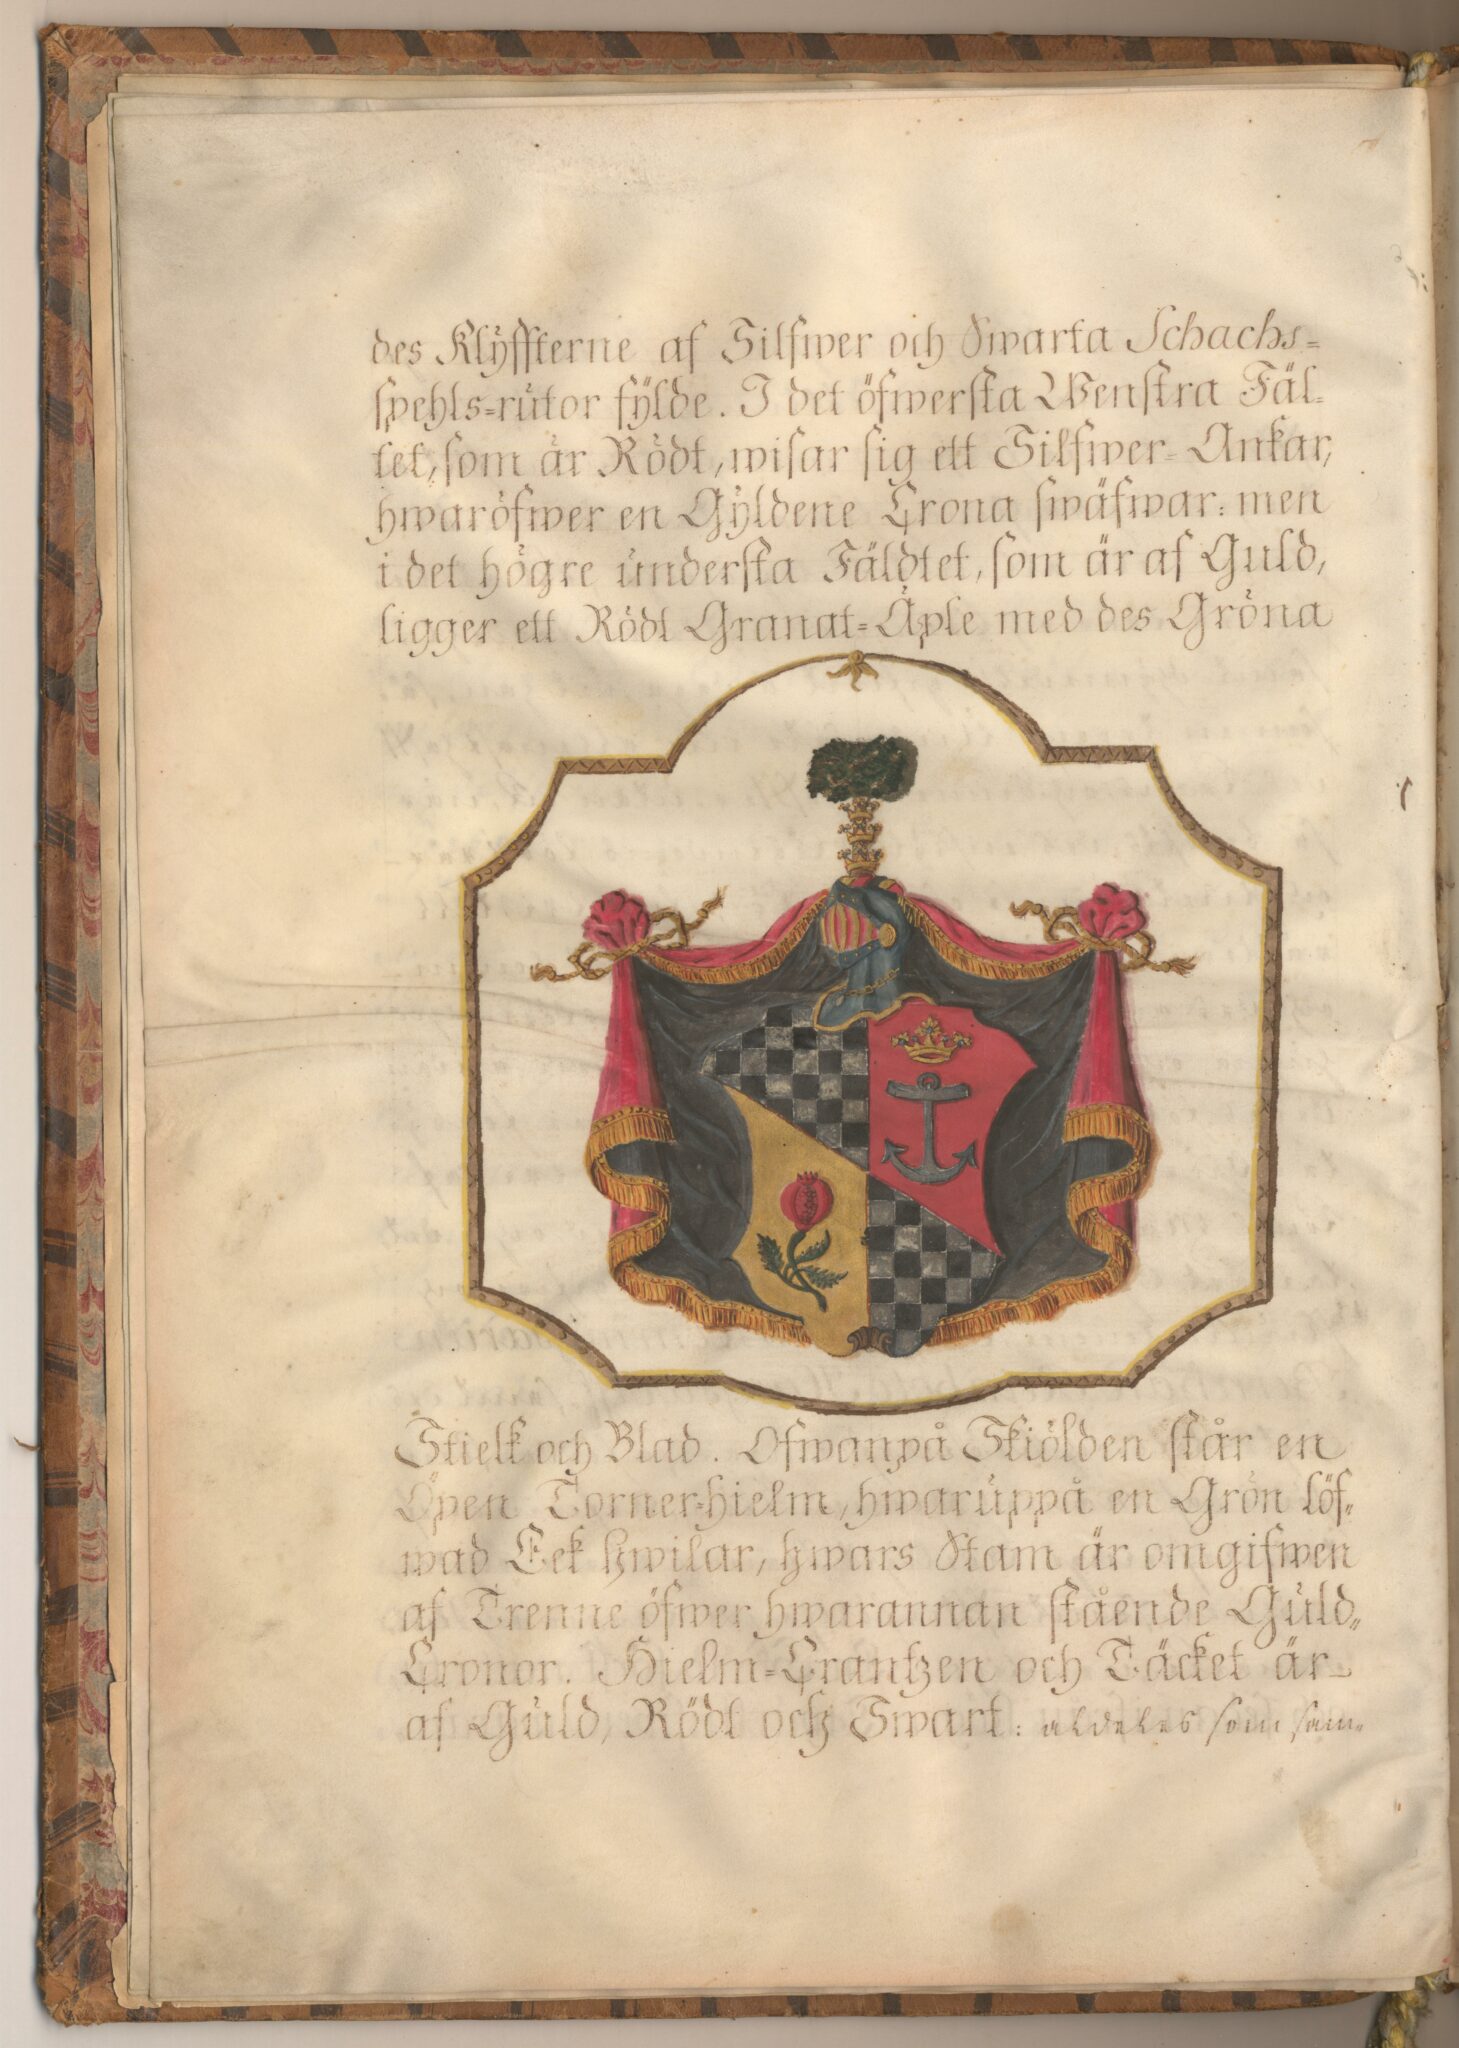 des Klÿffterne af Silfwer och Swarta Schachs=
spehls=rutor fÿlde. I det öfwersta Wenstra Fäl=
tet, som är Rödt, wisar sig ett Silfwer-Ankar,
hwaröfwer en Gÿldene Crona swäfwar: men
i det högre understa Fäldtet, som är af Guld,
ligger ett Rödt Granat=Äple med des Gröna
Stielk och Blad. Ofwanpå Skiölden står en
Öpen Torner=hielm, hwaruppå en Grön löf=
wad Eek hwilar, hwars Stam är omgifwen
af Trenne öfwer hwarannan stående Guld=
Cronor. Hielm=Crantzen och Täcket är
af Guld, Rödt och Swart: aldeles som sam=